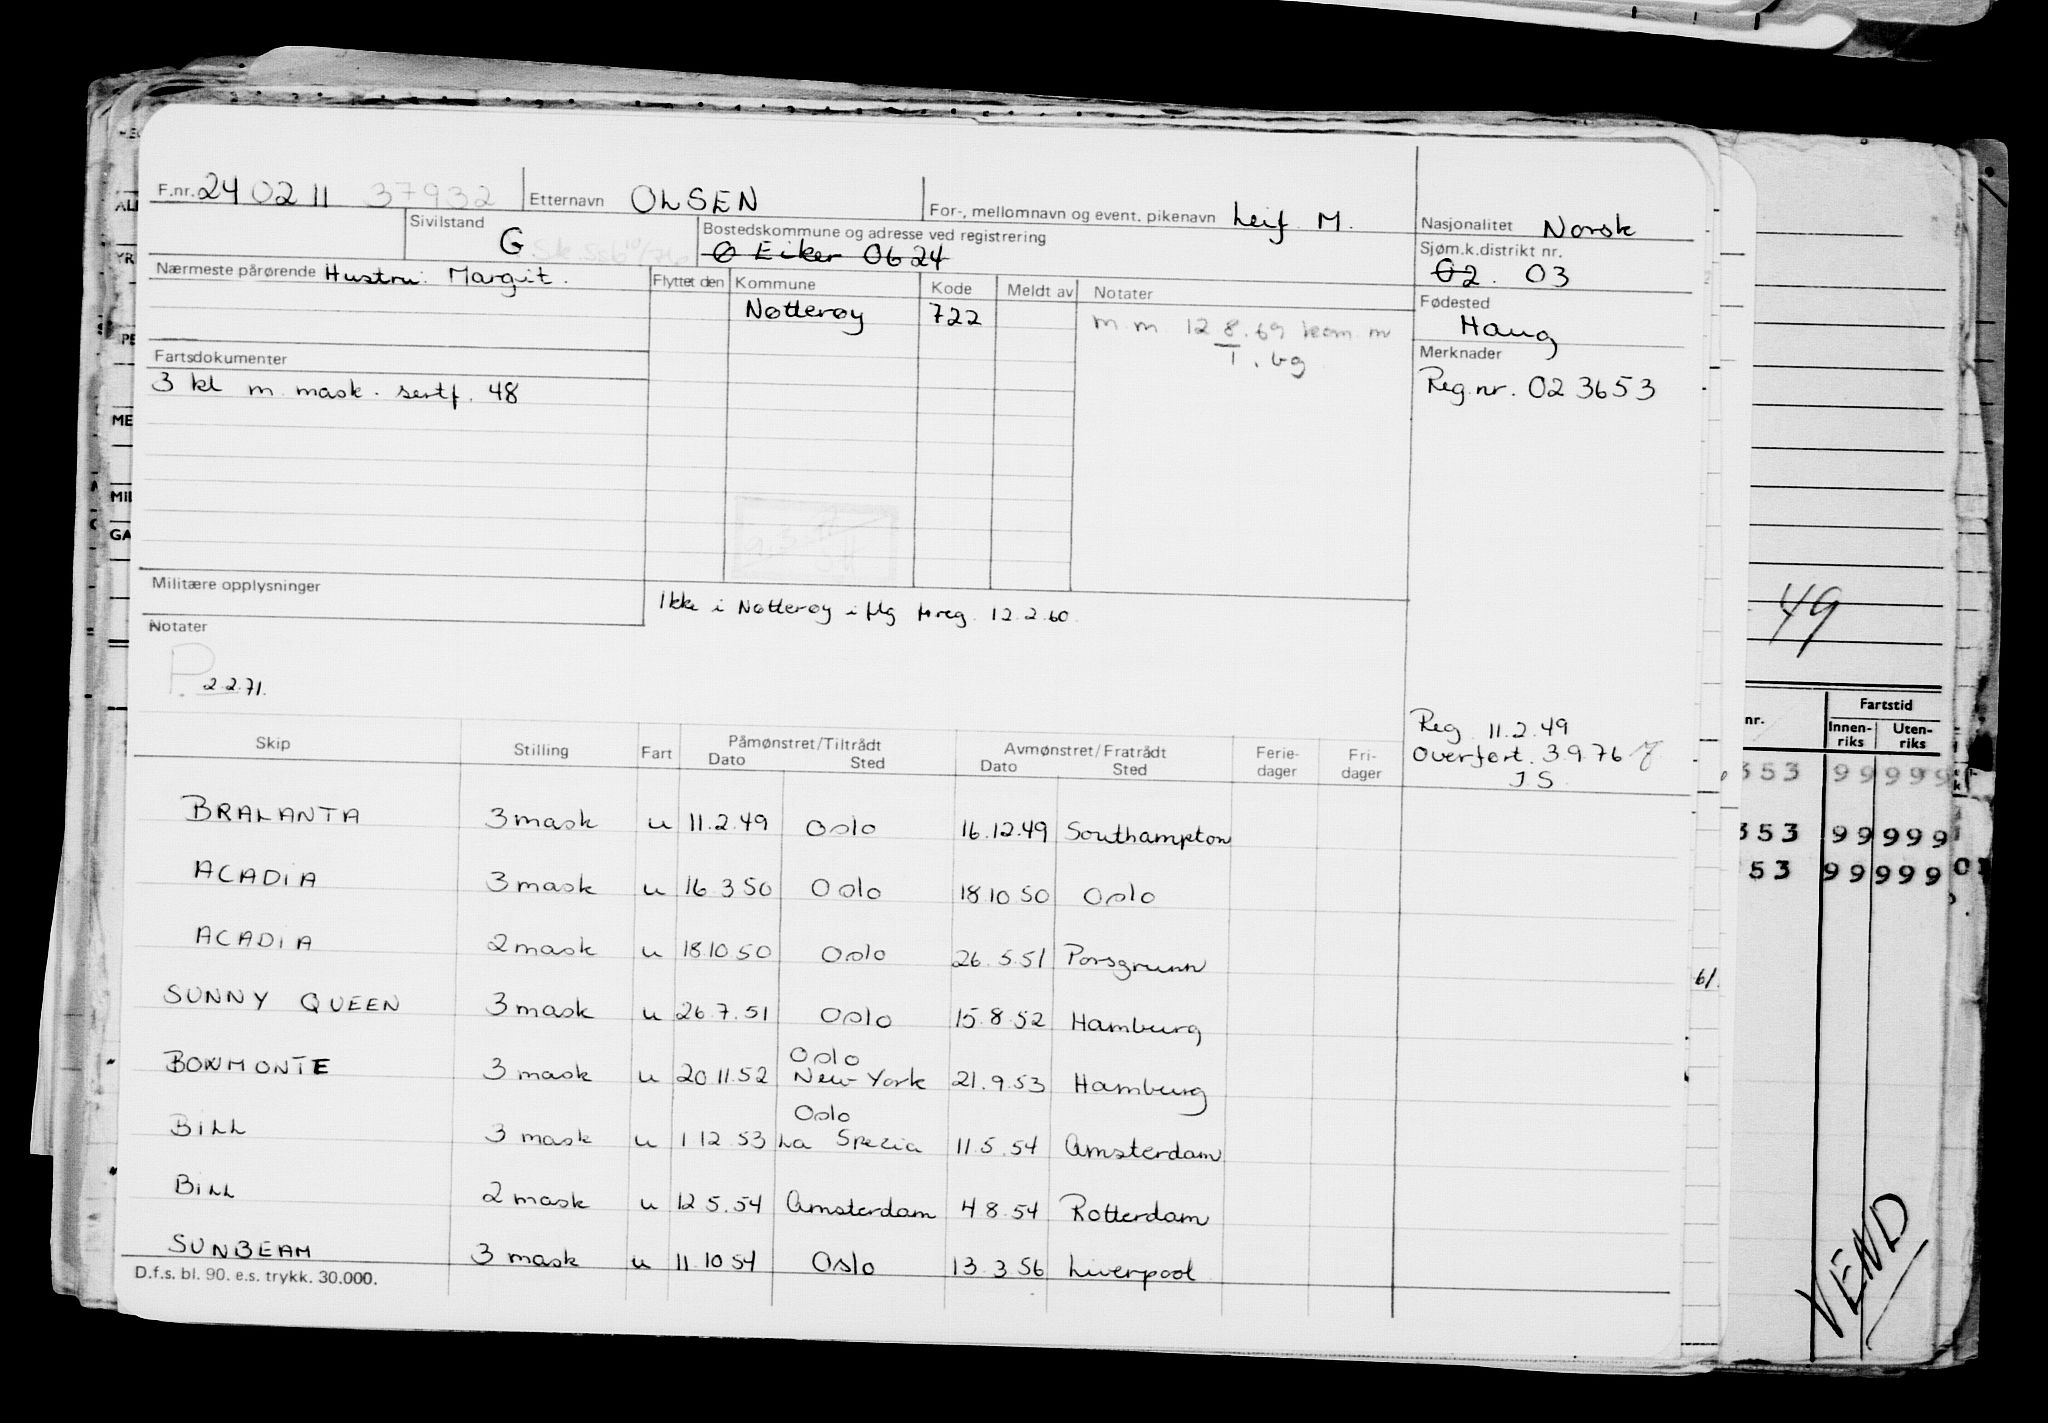 F.nr. 24 02 11 37932 Etternavn OLSEN For-, mellomnavn og event. pikenavn Leif M. Nasjonalitet Norsk
Sivilstand G Bostedskommune og adresse ved registrering
Ø Eiker 0624
Sjøm.k.distrikt nr.
02. 03
Nærmeste pårørende Hustru: Margit.
Flyttet den Kommune Kode Meldt av Notater
Nøtterøy 722
m.m. 12 8.69
Fødested
Haug
Merknader
Reg.nr. 02 3653
Fartsdokumenter
3 kl m. mask. sertf. 48
Militære opplysninger
Ikke i Nøtterøy i flg 12.2.60.
Notater
P. 2.2.71.
Reg. 11.2.49
Overført. 3.9.76
J.S.
Skip Stilling Fart Påmønstret/Tiltrådt Avmønstret/Fratrådt Ferie-dager Fri-dager
Dato Sted Dato Sted
BRALANTA 3 mask u 11.2.49 Oslo 16.12.49 Southampton
ACADIA 3 mask u 16.3 50 Oslo 18 10 50 Oslo
ACADIA 2 mask u 18 10 50 Oslo 26.5.51 Porsgrunn
SUNNY QUEEN 3 mask u 26.7.51 Oslo 15.8.52 Hamburg
BONMONTE 3 mask u 20 11.52 Oslo New York 21.9.53 Hamburg
BILL 3 mask u 1 12.53 Oslo La Spezia 11.5.54 Amsterdam
BILL 2 mask u 12.5.54 Amsterdam 4.8.54 Rotterdam
SUNBEAM 3 mask u 11.10 54 Oslo 13.3.56 Liverpool
D.f.s. bl. 90. e.s. trykk. 30.000.
49
nr. Fartstid
Innen-riks Uten-riks
353 99 999
353 99 999
53 99 999
61.
VEND